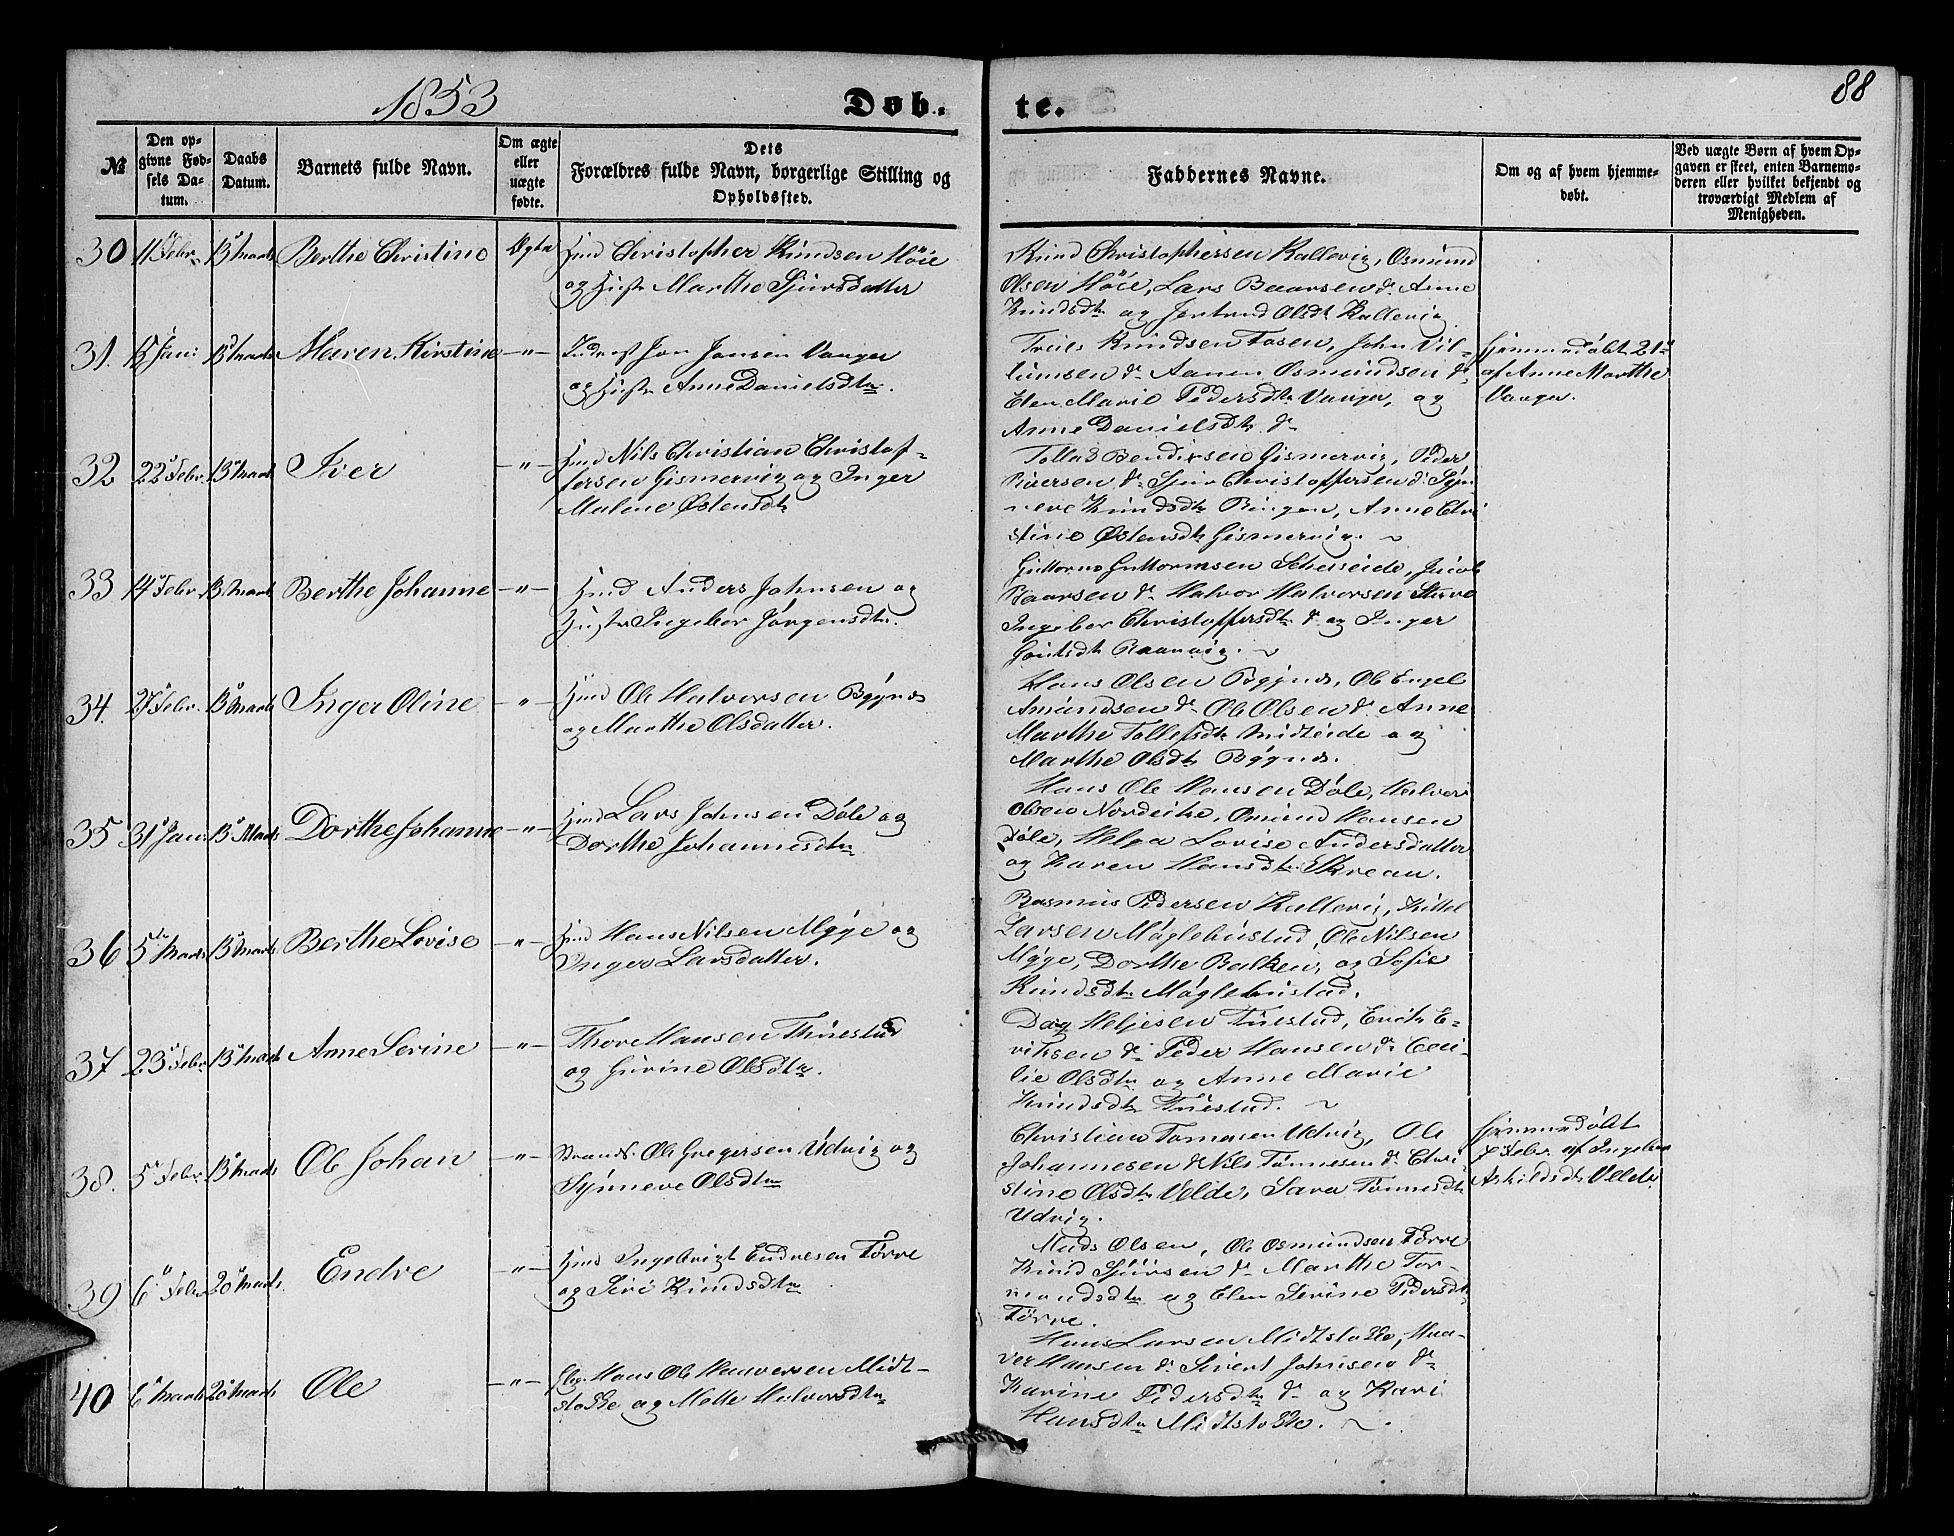 1853
Døb-
te.
88
№
Den op-
givne Fød-
sels Da-
tum.
Daabs
Datum.
Barnets fulde Navn.
Om ægte
eller
uægte
fødte.
Dets
Forældres fulde Navn, borgerlige Stilling og
Opholdssted.
Faddernes Navne.
Om og af hvem hjemme-
døbt.
Ved uægte Børn af hvem Op-
gaven er skeet, enten Barnemo-
deren eller hvilket bekjendt og
troværdigt Medlem af
Menigheden.
30 11 Febr. 13 Marts Berthe Christine Ægte Hmd Christopher Knudsen Høie
og Hustr Marthe Sjursdatter
Knud Christophersen Kallevig, Osmund
Olsen Høie, Lars Baarsen do Anne
Knudsdtr og Jertrud Olsdtr Kallevig
31. 13 Marts Maren Kirstine -"- Jon Jonsen Vanger
og Hustr Anne Danielsdtr.
Knudsen Fosen, John Vil-
lumsen do Aanen Osmundsen do
Elen Marie Pedersdtr Vanger, og
Anne Danielsdtr do
Hjemmedøbt 21
af Anne Marthe
Vanger.
32 22 Febr. 13 Marts Iver -"- Hmd Nils Christian Christof-
fersen Gismervig og Inger
Malene Østensdtr
Bendixsen Gismervig, Peder
Iversen do Sjur Christoffersen do Syn-
neve Knudsdtr Ringen, Anne Chri
stine Østensdtr Gismervig.
33 14 Febr. 13 Marts Berthe Johanne -"- Hmd Anders Johnsen og
Hustr Ingebor Jørgensdtr.
Guttorm Guttormsen Jacob
Baarsen do Halvor Halvorsen
Ingebor Christoffersdtr do og Inger
34. 27 Febr. 13 Marts Inger Oline -"- Hmd Ole Halvorsen Bøynes
og Marthe Olsdatter.
Hans Olsen Bøynes, Ole Engel
Amundsen do Ole Olsen do Anne
Marthe Tollefsdtr Midteide og
Marthe Olsdtr Bøynes.
35 31 Jan. 13 Marts Dorthe Johanne -"- Hmd Lars Johnsen Døle og
Dorthe Johannesdtr
Hans Ole Hansen Døle, Halvor
Olsen Nordeike, Osmund Hansen
Døle, Helga Lovise Andersdatter
og Karen Hansdtr Skreen.
36 5te Marts 13 Marts Berthe Lovise -"- Hmd Hans Nilsen Myge og
Inger Larsdatter.
Rasmus Pedersen Kallevig, Kittel
Larsen Møglebustad, Ole Nilsen
Myge, Dorthe Balken, og Sofie
Knudsdtr Møglebustad.
37 23 Febr. 13 Marts Anne Serine -"- Thore Hansen Thuestad
og Gurine Olsdtr.
Dag Heljesen Tuestad, Erik E-
riksen do Peder Hansen do Ceci-
lie Olsdtr og Anne Marie
Knudsdtr Tuestad.
38. 5 Febr. 13 Marts Ole Johan -"- Strands. Ole Gregersen Udvig og
Synneve Olsdtr
Christian Tomasen Udvig, Ole
Johannesen do Nils Tønnesen do Chri-
stine Olsdtr Velde, Sara Tønnesdtr
Udvig.
Hjemmedøbt
7 Febr. af Ingebor
Askildsdtr Velde
39 6 Febr 20 Marts. Endre -"- Hmd Ingebrigt Endresen Førre
og Siri Knudsdtr
Mads Olsen, Ole Osmundsen Førre
Knud Sjursen do Marthe Tor-
mondsdtr og Elen Serine Pedersdtr
Førre.
40 6 Marts 20 Marts Ole -"- Hans Ole Haaversen Midt-
stokke og Mette Halvorsdtr
Hans Larsen Midtstokke, Haa-
ver Hansen do Sivert Johnsen do
Karine Pedersdtr do og Kari
Hansdtr Midtstokke.